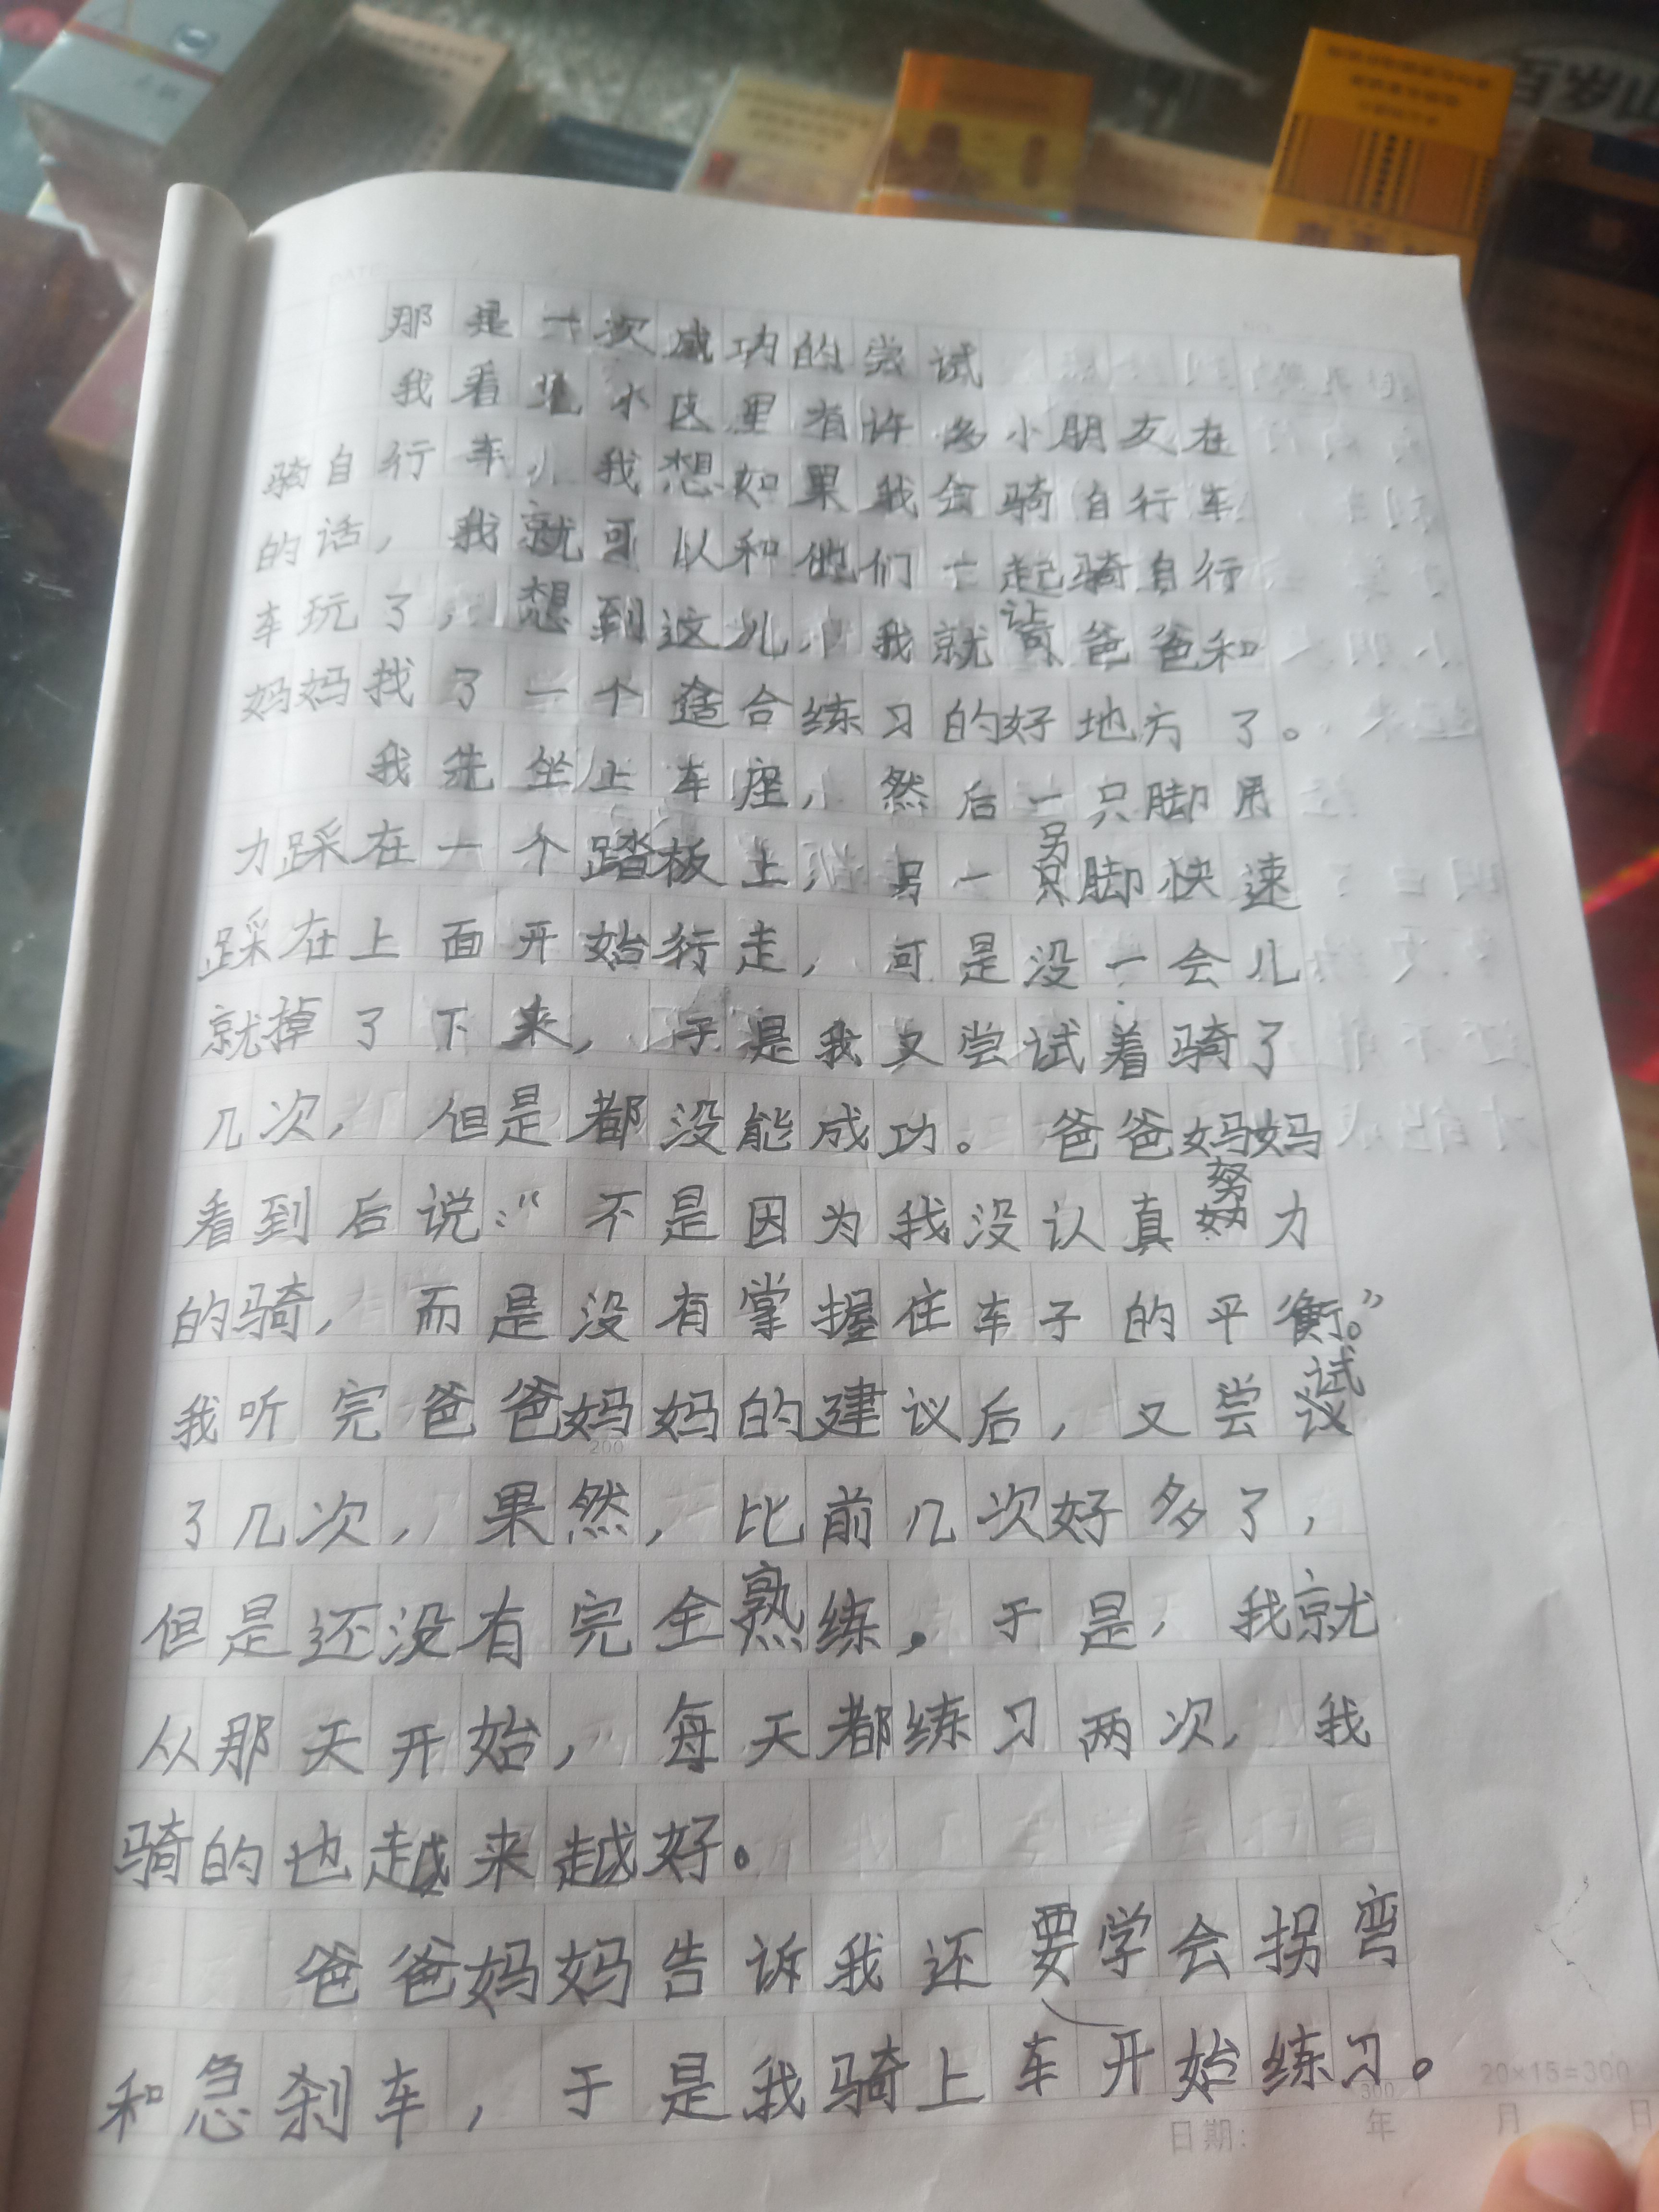 百岁山
那是一次成功的尝试
我看见小区里有许多小朋友在
骑自行车，我想如果我会骑自行车
的话，我就可以和他们一起骑自行
车玩了，想到这儿，我就让爸爸和
妈妈找了一个适合练习的好地方了。
我先坐上车座，然后一只脚用
力踩在一个踏板上，另一只脚快速
踩在上面开始行走，可是没一会儿
就掉了下来，于是我又尝试着骑了
几次，但是都没能成功。爸爸妈妈
看到后说：“不是因为我没认真努力
的骑，而是没有掌握住车子的平衡。”
我听完爸爸妈妈的建议后，又尝试
了几次，果然，比前几次好多了，
但是还没有完全熟练。于是，我就
从那天开始，每天都练习两次，我
骑的也越来越好。
爸爸妈妈告诉我还要学会拐弯
和急刹车，于是我骑上车开始练习。
20×15=300
日期: 年 月 日